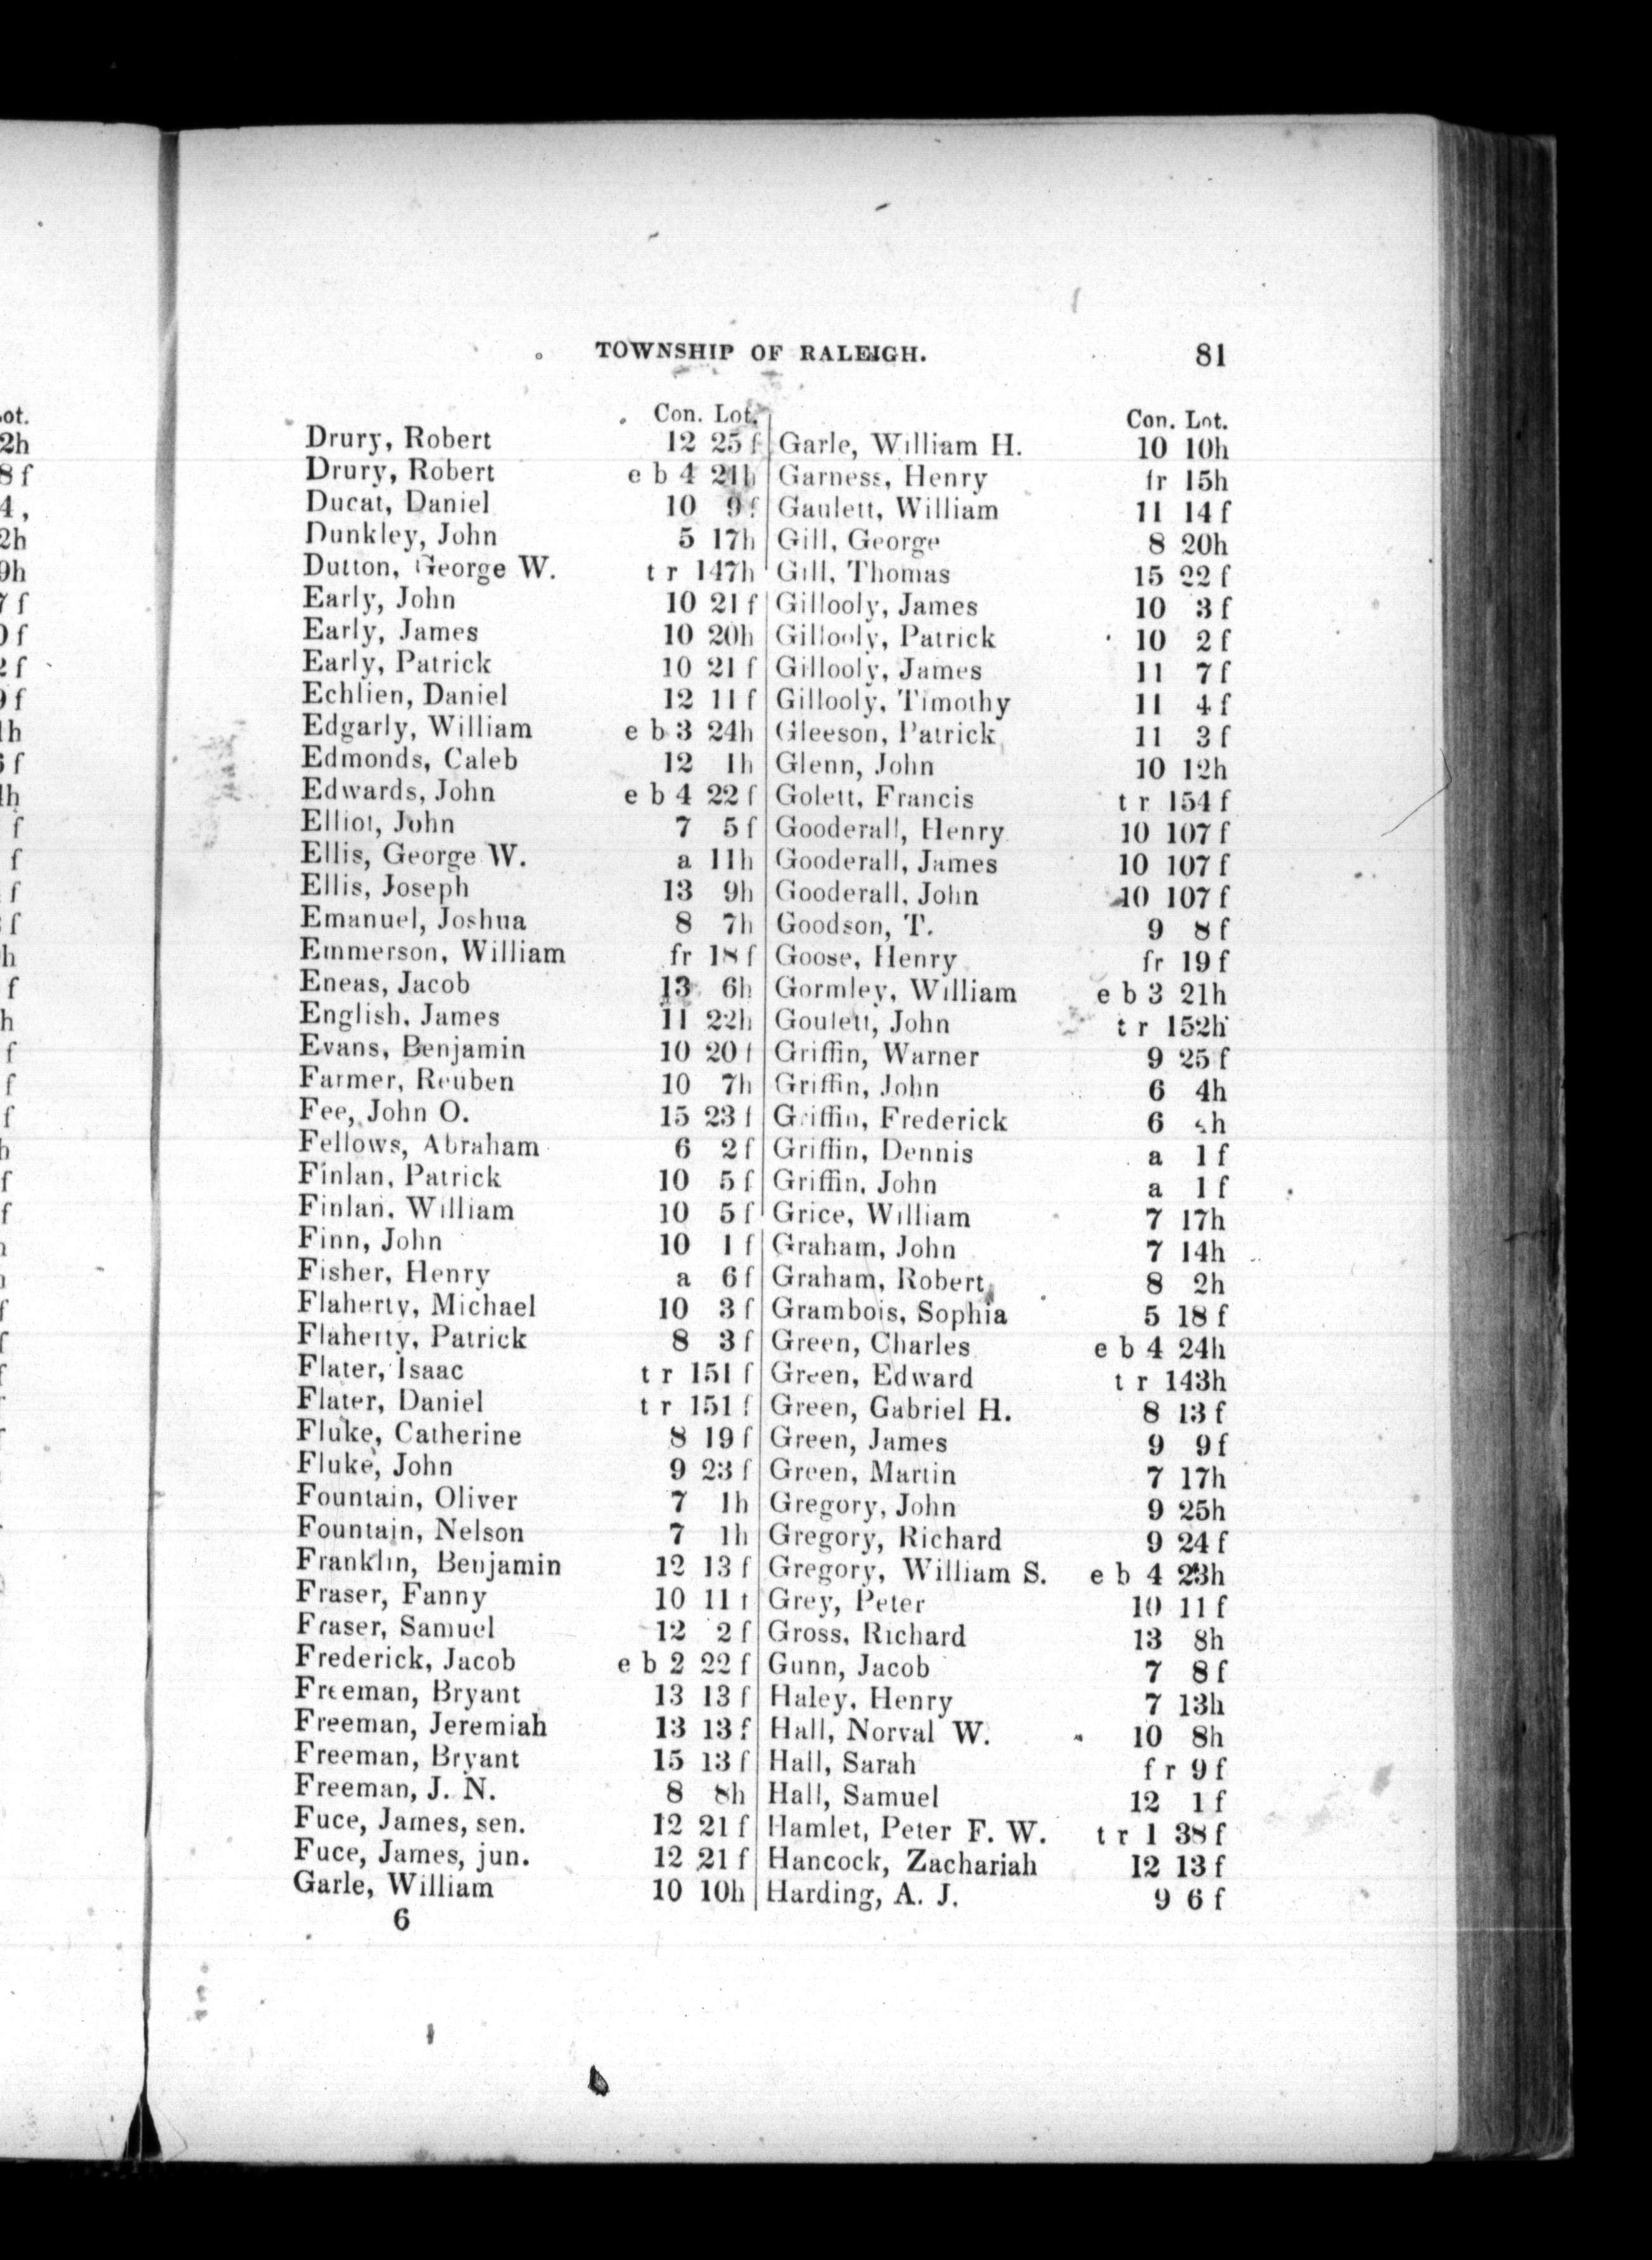 TOWNSHIP OF RALEIGH. 81
Con. Lot.
Drury, Robert 12 25 f
Drury, Robert e b 4 21h
Ducat, Daniel 10 9 f
Dunkley, John 5 17h
Dutton, George W. t r 147h
Early, John 10 21 f
Early, James 10 20h
Early, Patrick 10 21 f
Echlien, Daniel 12 11 f
Edgarly, William e b 3 24h
Edmonds, Caleb 12 1h
Edwards, John e b 4 22 f
Elliot, John 7 5 f
Ellis, George W. a 11h
Ellis, Joseph 13 9h
Emanuel, Joshua 8 7h
Emmerson, William fr 18 f
Eneas, Jacob 13 6h
English, James 11 22h
Evans, Benjamin 10 20 f
Farmer, Reuben 10 7h
Fee, John O. 15 23 f
Fellows, Abraham 6 2 f
Finlan, Patrick 10 5 f
Finlan, William 10 5 f
Finn, John 10 1 f
Fisher, Henry a 6 f
Flaherty, Michael 10 3 f
Flaherty, Patrick 8 3 f
Flater, Isaac t r 151 f
Flater, Daniel t r 151 f
Fluke, Catherine 8 19 f
Fluke, John 9 23 f
Fountain, Oliver 7 1h
Fountain, Nelson 7 1h
Franklin, Benjamin 12 13 f
Fraser, Fanny 10 11 f
Fraser, Samuel 12 2 f
Frederick, Jacob e b 2 22 f
Freeman, Bryant 13 13 f
Freeman, Jeremiah 13 13 f
Freeman, Bryant 15 13 f
Freeman, J. N. 8 8h
Fuce, James, sen. 12 21 f
Fuce, James, jun. 12 21 f
Garle, William 10 10h
6
Con. Lot.
Garle, William H. 10 10h
Garness, Henry fr 15h
Gaulett, William 11 14 f
Gill, George 8 20h
Gill, Thomas 15 22 f
Gillooly, James 10 3 f
Gillooly, Patrick 10 2 f
Gillooly, James 11 7 f
Gillooly, Timothy 11 4 f
Gleeson, Patrick 11 3 f
Glenn, John 10 12h
Golett, Francis t r 154 f
Gooderall, Henry 10 107 f
Gooderall, James 10 107 f
Gooderall, John 10 107 f
Goodson, T. 9 8 f
Goose, Henry fr 19 f
Gormley, William e b 3 21h
Goulett, John t r 152h
Griffin, Warner 9 25 f
Griffin, John 6 4h
Griffin, Frederick 6
Griffin, Dennis a 1 f
Griffin, John a 1 f
Grice, William 7 17h
Graham, John 7 14h
Graham, Robert 8 2h
Grambois, Sophia 5 18 f
Green, Charles e b 4 24h
Green, Edward t r 143h
Green, Gabriel H. 8 13 f
Green, James 9 9 f
Green, Martin 7 17h
Gregory, John 9 25h
Gregory, Richard 9 24 f
Gregory, William S. e b 4 23h
Grey, Peter 10 11 f
Gross, Richard 13 8h
Gunn, Jacob 7 8 f
Haley, Henry 7 13h
Hall, Norval W. 10 8h
Hall, Sarah f r 9 f
Hall, Samuel 12 1 f
Hamlet, Peter F. W. t r 1 38 f
Hancock, Zachariah 12 13 f
Harding, A. J. 9 6 f